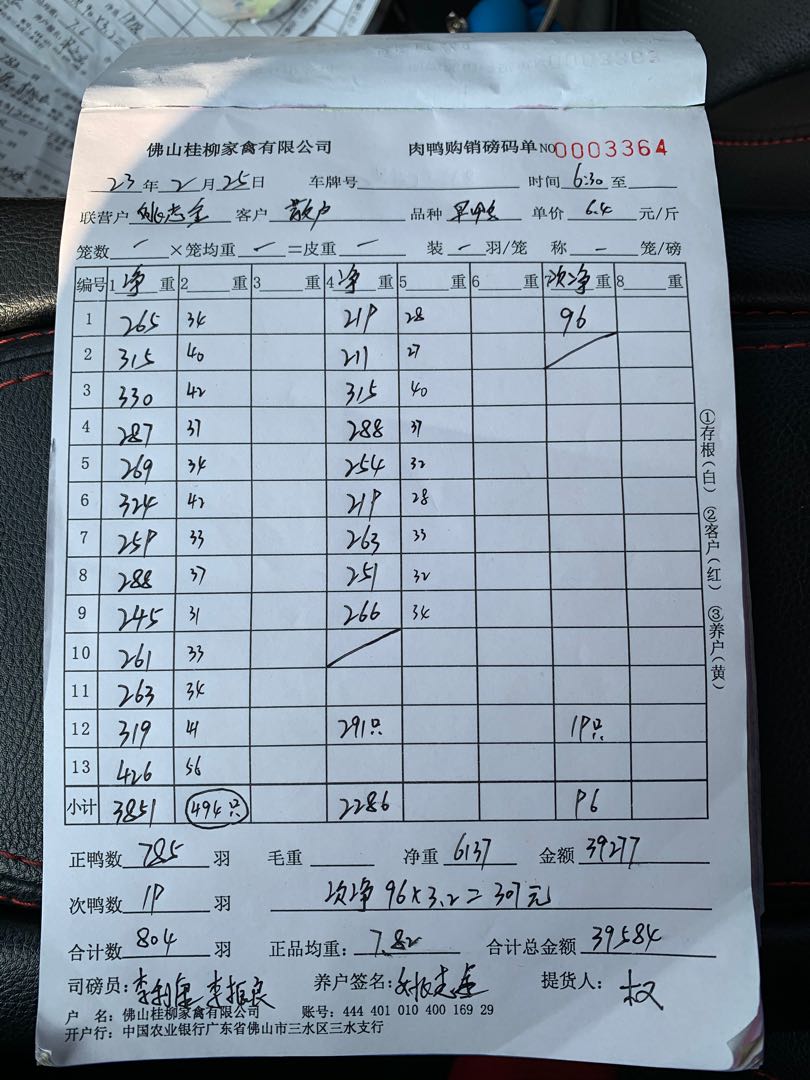 佛山桂柳家禽有限公司 肉鸭购销磅码单 NO 0003364
23 年 2 月 25 日 车牌号 时间 6:30 至
联营户 姚志金 客户 散户 品种 单价 6.4 元/斤
笼数 — ×笼均重 — =皮重 — 装 — 羽/笼 称 — 笼/磅
编号 1 净 重 2 重 3 重 4 净 重 5 重 6 重 7 次净 重 8 重
1 265 34 219 28 96
2 315 40 211 27
3 330 42 315 40
4 287 37 288 37
5 269 34 254 32
6 324 42 219 28
7 259 33 263 33
8 288 37 251 32
9 245 31 266 34
10 261 33
11 263 34
12 319 41 291只 19只
13 426 56
小计 3851 494只 2286 96
正鸭数 785 羽 毛重 净重 6137 金额 39277
次鸭数 19 羽 次净 96×3.2=307元
合计数 804 羽 正品均重: 7.82 合计总金额 39584
司磅员: 李振良 养户签名: 提货人: 权
户 名: 佛山桂柳家禽有限公司 账号: 444 401 010 400 169 29
开户行: 中国农业银行广东省佛山市三水区三水支行
①存根(白) ②客户(红) ③养户(黄)